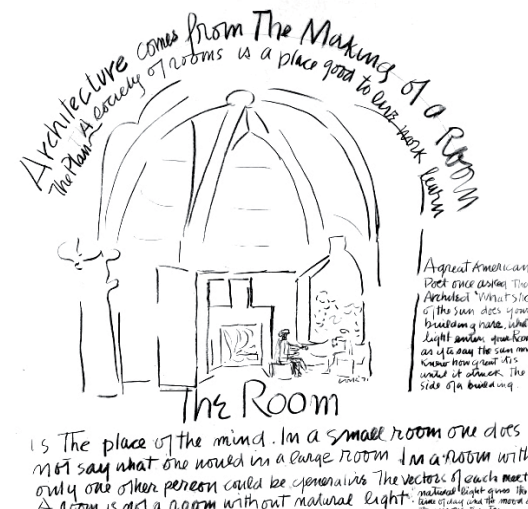 Architecture comes from The Making of a Room
The Plan - A society of rooms is a place good to live work learn
A great American
Poet once asked The
Architect 'What slice
of the sun does your
building have, what
light enters your Room
as if to say the sun never
knew how great it is
until it struck the
side of a building.
The Room
is The place of the mind. In a small room one does
not say what one would in a large room In a room with
only one other person could be generative The vectors of each meet
A room is not a room without natural light.
natural light gives the
time of day and the mood of